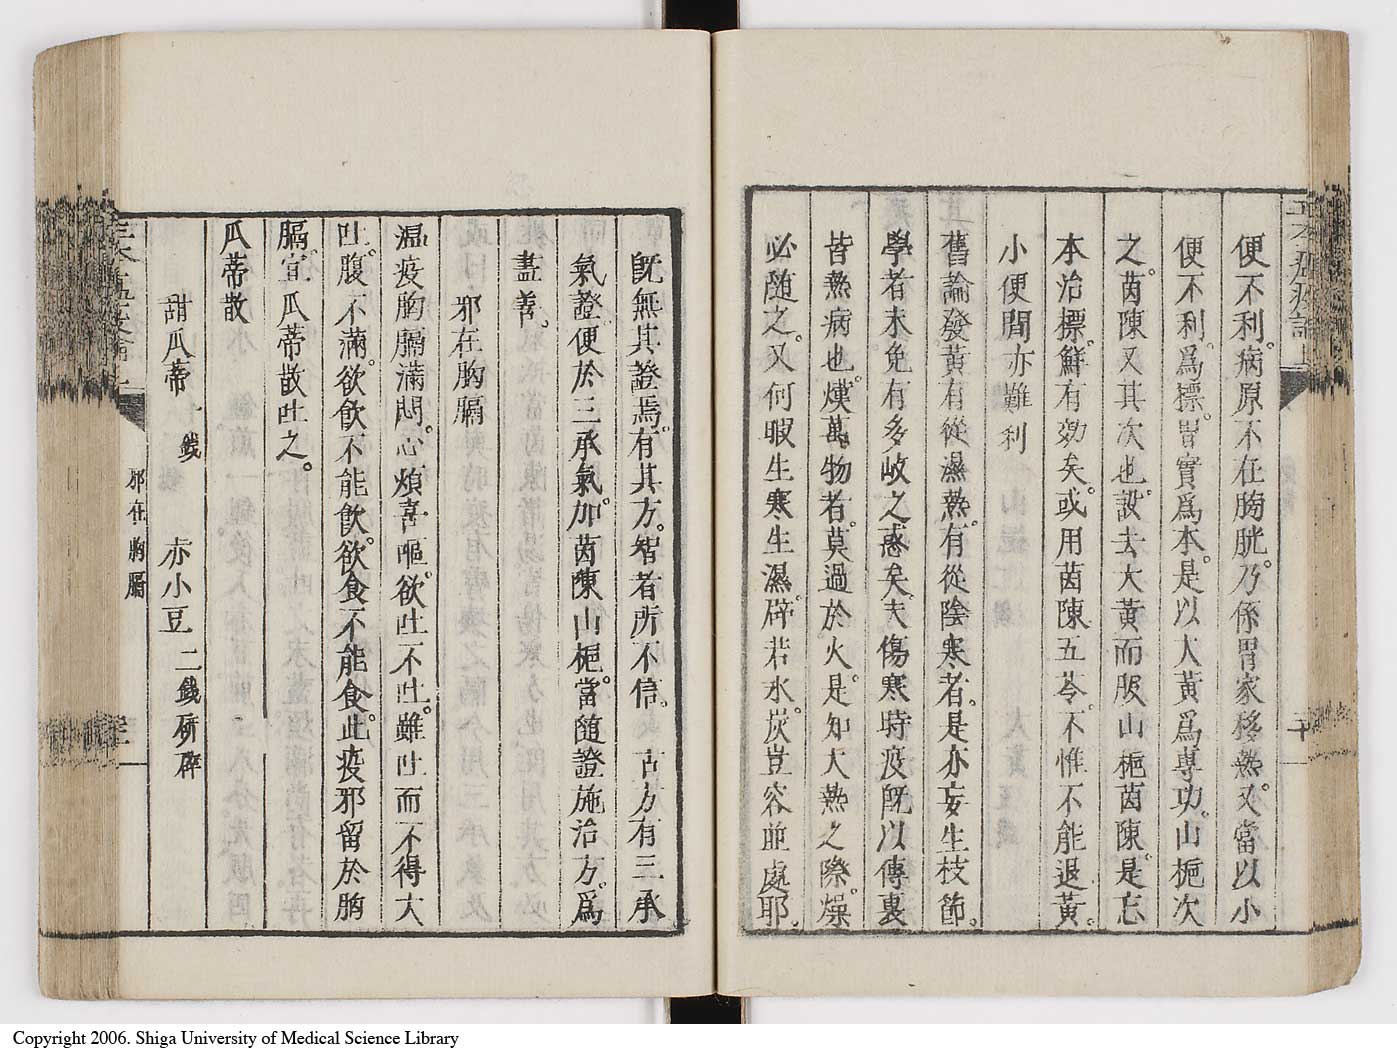 便不利。病原不在膀胱。乃係胃家移熱。又當以小
便不利。爲標。胃實爲本。是以大黃爲專功。山梔次
之。茵陳又其次也。設去大黃而服山梔茵陳。是忘
本治標。鮮有効矣。或用茵陳五苓。不惟不能退黃。
小便間亦難利
舊論發黃有從濕熱。有從陰寒者。是亦妄生枝節。
學者未免有多岐之惑矣。夫傷寒時疫既以傳裏
皆熱病也。熯萬物者。莫過於火。是知大熱之際。燥
必随之。又何暇生寒生濕。辟若氷炭豈容並處耶。
既無其證焉。有其方。智者所不信。古方有三承
氣證便於三承氣。加茵陳山梔。當隨證施治方。爲
盡善。
邪在胸膈
溫疫胸膈滿悶。心煩喜嘔。欲吐不吐。雖吐而不得大
吐。腹不滿。欲飲不能飲。欲食不能食。此疫邪留於胸
膈。宜瓜蒂散吐之。
瓜蒂散
甜瓜蒂 十錢 赤小豆 二錢研碎
邪在胸膈
Copyright 2006. Shiga University of Medical Science Library